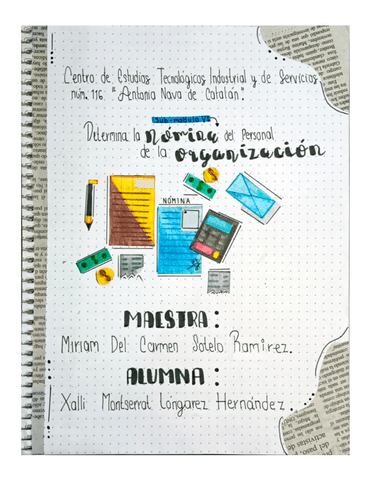 Centro de Estudios Tecnológicos Industrial y de Servicios
núm. 116 "Antonia Nava de Catalán".
Sub-modulo VI
Determina la nómina del Personal
de la organización
NÓMINA
MAESTRA:
Miriam Del Carmen Sotelo Ramirez.
ALUMNA:
Xalli Montserrat Lóngarez Hernández.